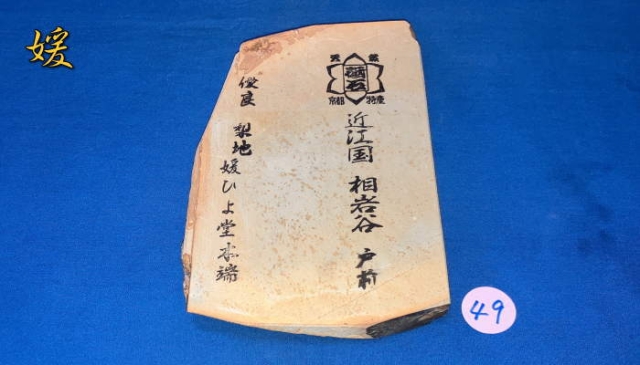 媛
天然
砥石
京都 特産
近江国 相岩谷 戸前
優良 梨地 媛ひよ堂
49